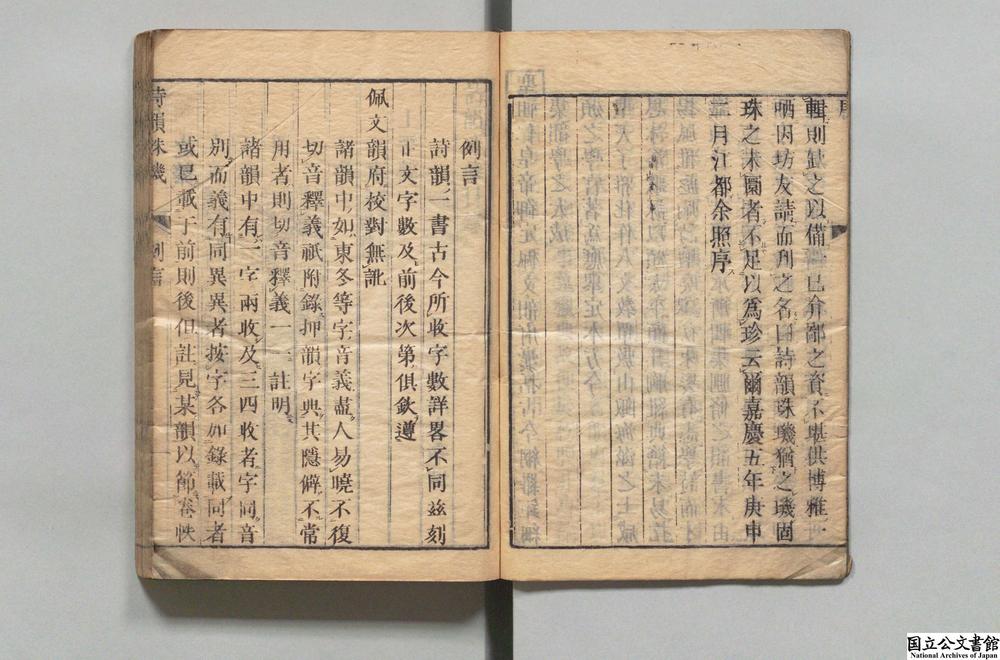 序
輯則
之以備
已弁鄙之資不堪供博雅一
哂因坊友請而刋之名曰詩韻珠璣猶之璣固
珠之未圓者不足以爲珍云爾嘉慶五年庚申
二月江都余照序
例言
詩韻一書古今所收字數詳畧不同兹刻
正文字數及前後次第俱欽遵
佩文韻府校對無訛
諸韻中如東冬等字音義盡人易曉不復
切音釋義祇附錄押韻字典其隱僻不常
用者則切音釋義一一註明
諸韻中有一字兩收及三四收者字同音
別而義有同異異者按字各加錄載同者
或已載于前則後但註見某韻以節卷帙
詩韻珠璣
例言
国立公文書館
National Archives of Japan